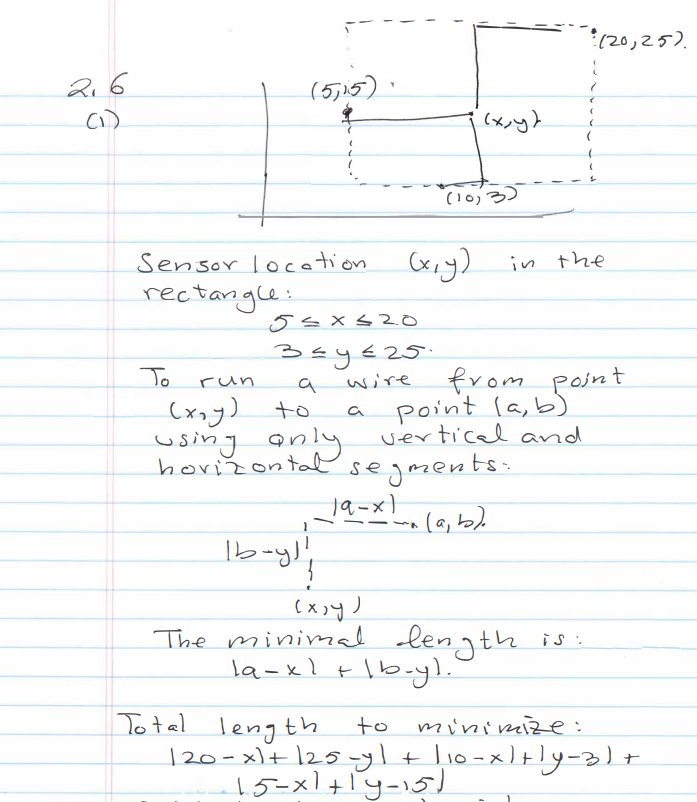 (20,25).
2.6
(5,15)
(1)
(x,y)
(10,3)
Sensor location (x,y) in the
rectangle:
5 ≤ x ≤ 20
3 ≤ y ≤ 25.
To run a wire from point
(x,y) to a point (a,b)
using only vertical and
horizontal segments:
|a-x|
(a,b).
|b-y|
(x,y)
The minimal length is:
|a-x| + |b-y|.
Total length to minimize:
|20-x|+|25-y| + |10-x|+|y-3| +
|5-x|+|y-15|